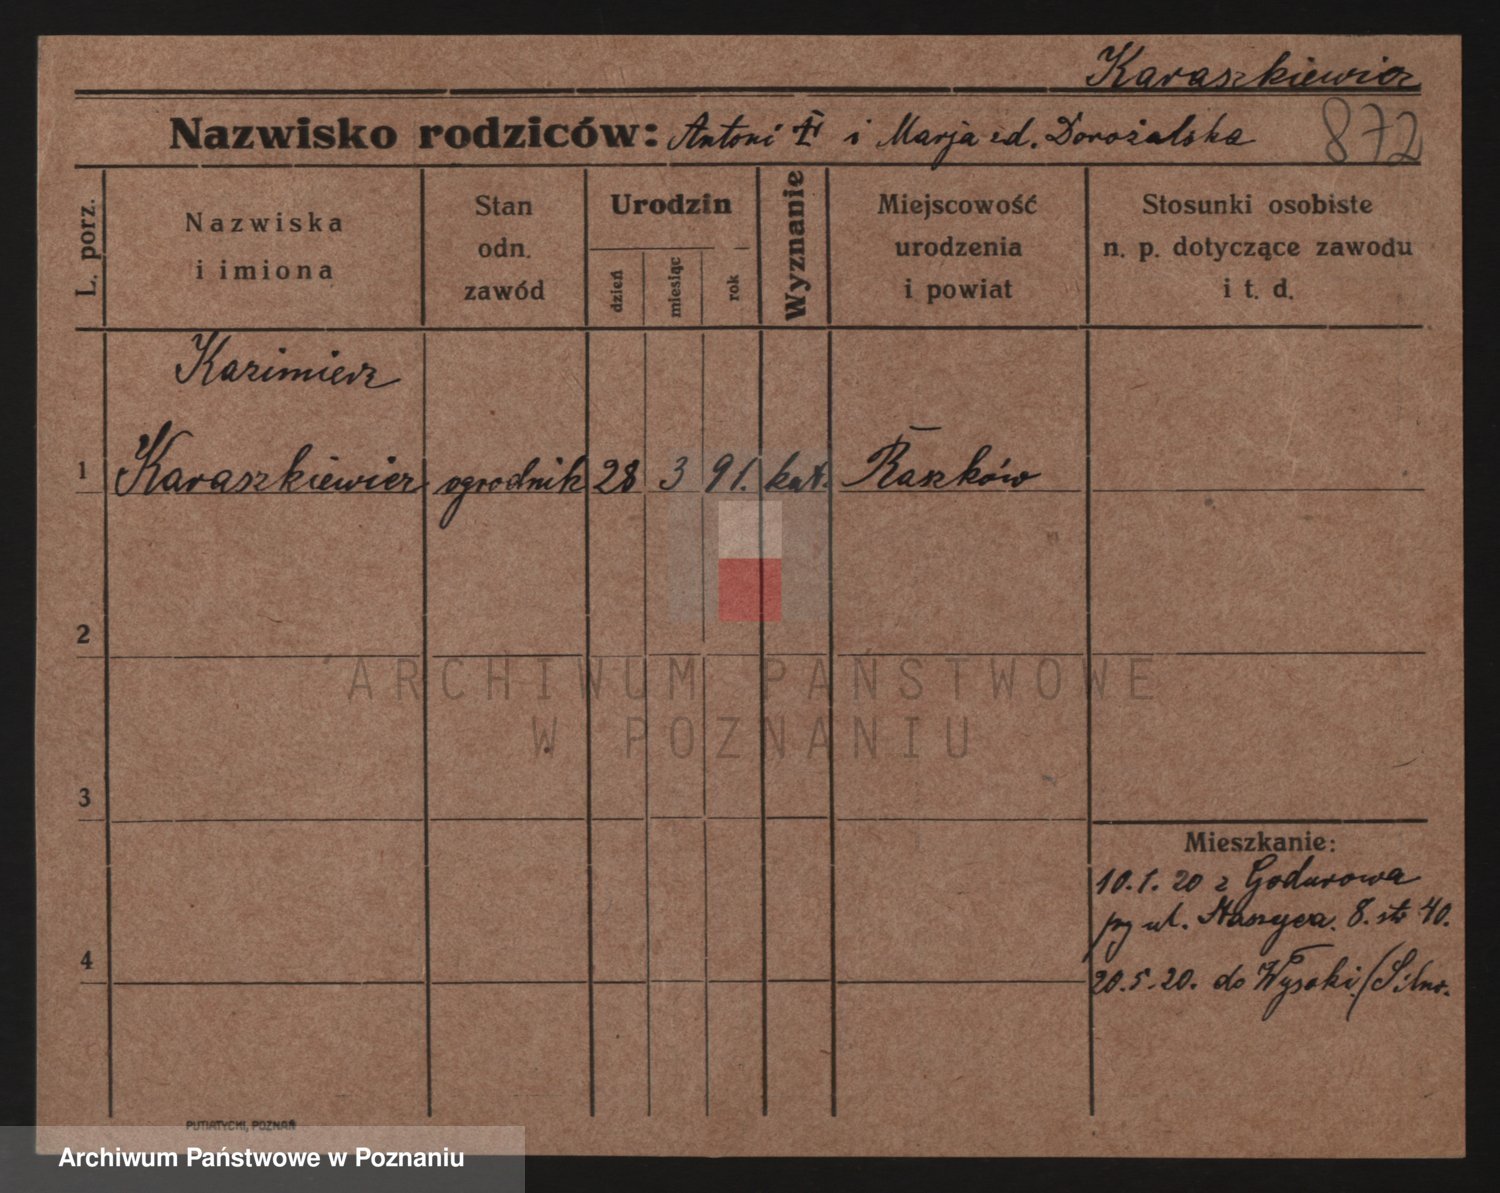 Karaszkiewicz
Nazwisko rodziców: Antoni i Marja zd. Dorożalska
872
L. porz.
Nazwiska
i imiona
Stan
odn.
zawód
Urodzin
dzień
miesiąc
rok
Wyznanie
Miejscowość
urodzenia
i powiat
Stosunki osobiste
n. p. dotyczące zawodu
i t. d.
Kazimierz
1 Karaszkiewicz ogrodnik 28 3 91. kat. Raszków
2
3
4
Mieszkanie:
10.1.20 z Godurowa
ul. Staszyca. 8. 40.
20.5.20. do Wysoki/Silno.
PUTIATYCKI, POZNAŃ
ARCHIWUM PAŃSTWOWE
W POZNANIU
Archiwum Państwowe w Poznaniu